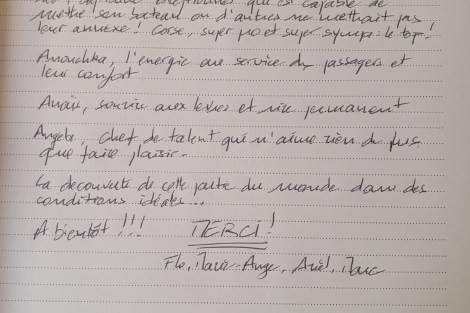 capitaine exceptionnel qui est capable de
mettre son bateau où d'autres ne mettrait pas
leur annexe ! Corse, super pro et super sympa : le top !
Anouchka, l'energie au service des passagers et
leur confort
Anaïs, sourire aux levres et rire permanent
Angela, chef de talent qui n'aime rien de plus
que faire plaisir.
La découverte de cette partie du monde dans des
conditions idéales...
A bientôt !!!
MERCI !
Flo, Marie-Ange, Axel, Marc